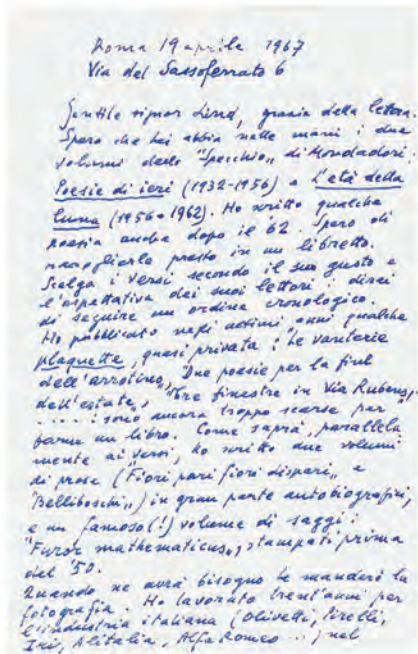 Roma 19 aprile 1967
Via del Sassoferrato 6
Gentile signor Lind, grazie della lettera.
Spero che Lei abbia nelle mani i due
volumi dello "Specchio" di Mondadori.
Poesie di ieri (1932-1956) e L'età della
luna (1956-1962). Ho scritto qualche
poesia anche dopo il 62. Spero di
raccoglierle presto in un libretto.
Scelga i versi secondo il suo gusto e
l'aspettativa dei suoi lettori: direi
di seguire un ordine cronologico.
Ho pubblicato negli ultimi anni qualche
plaquette, quasi privata: "Le vanterie
dell'arrotino", "Due poesie per la fine
dell'estate", "Tre finestre in Via Rubens",
.....: sono ancora troppo scarse per
farne un libro. Come saprà, parallela
mente ai versi, ho scritto due volumi
di prose ("Fiori pari fiori dispari" e
"Belliboschi") in gran parte autobiografici,
e un famoso(!) volume di saggi:
"Furor mathematicus", stampati prima
del '50.
Quando ne avrà bisogno le manderò la
fotografia. Ho lavorato trent'anni per
l'industria italiana (Olivetti, Pirelli,
Iri, Alitalia, Alfa Romeo ...) nel